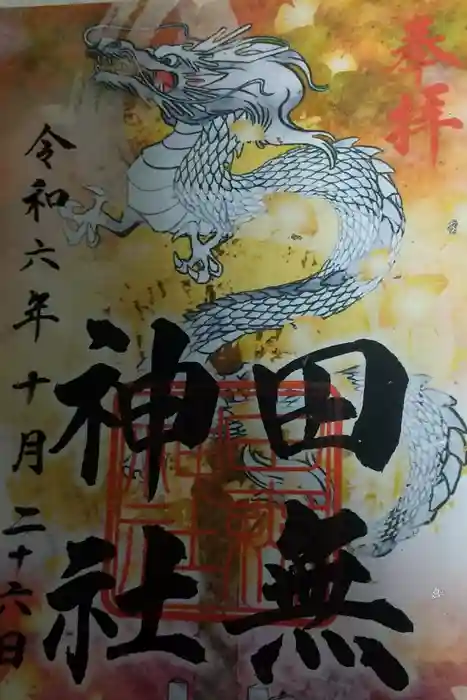 奉拝
田無
神社
令和六年十月二十六日